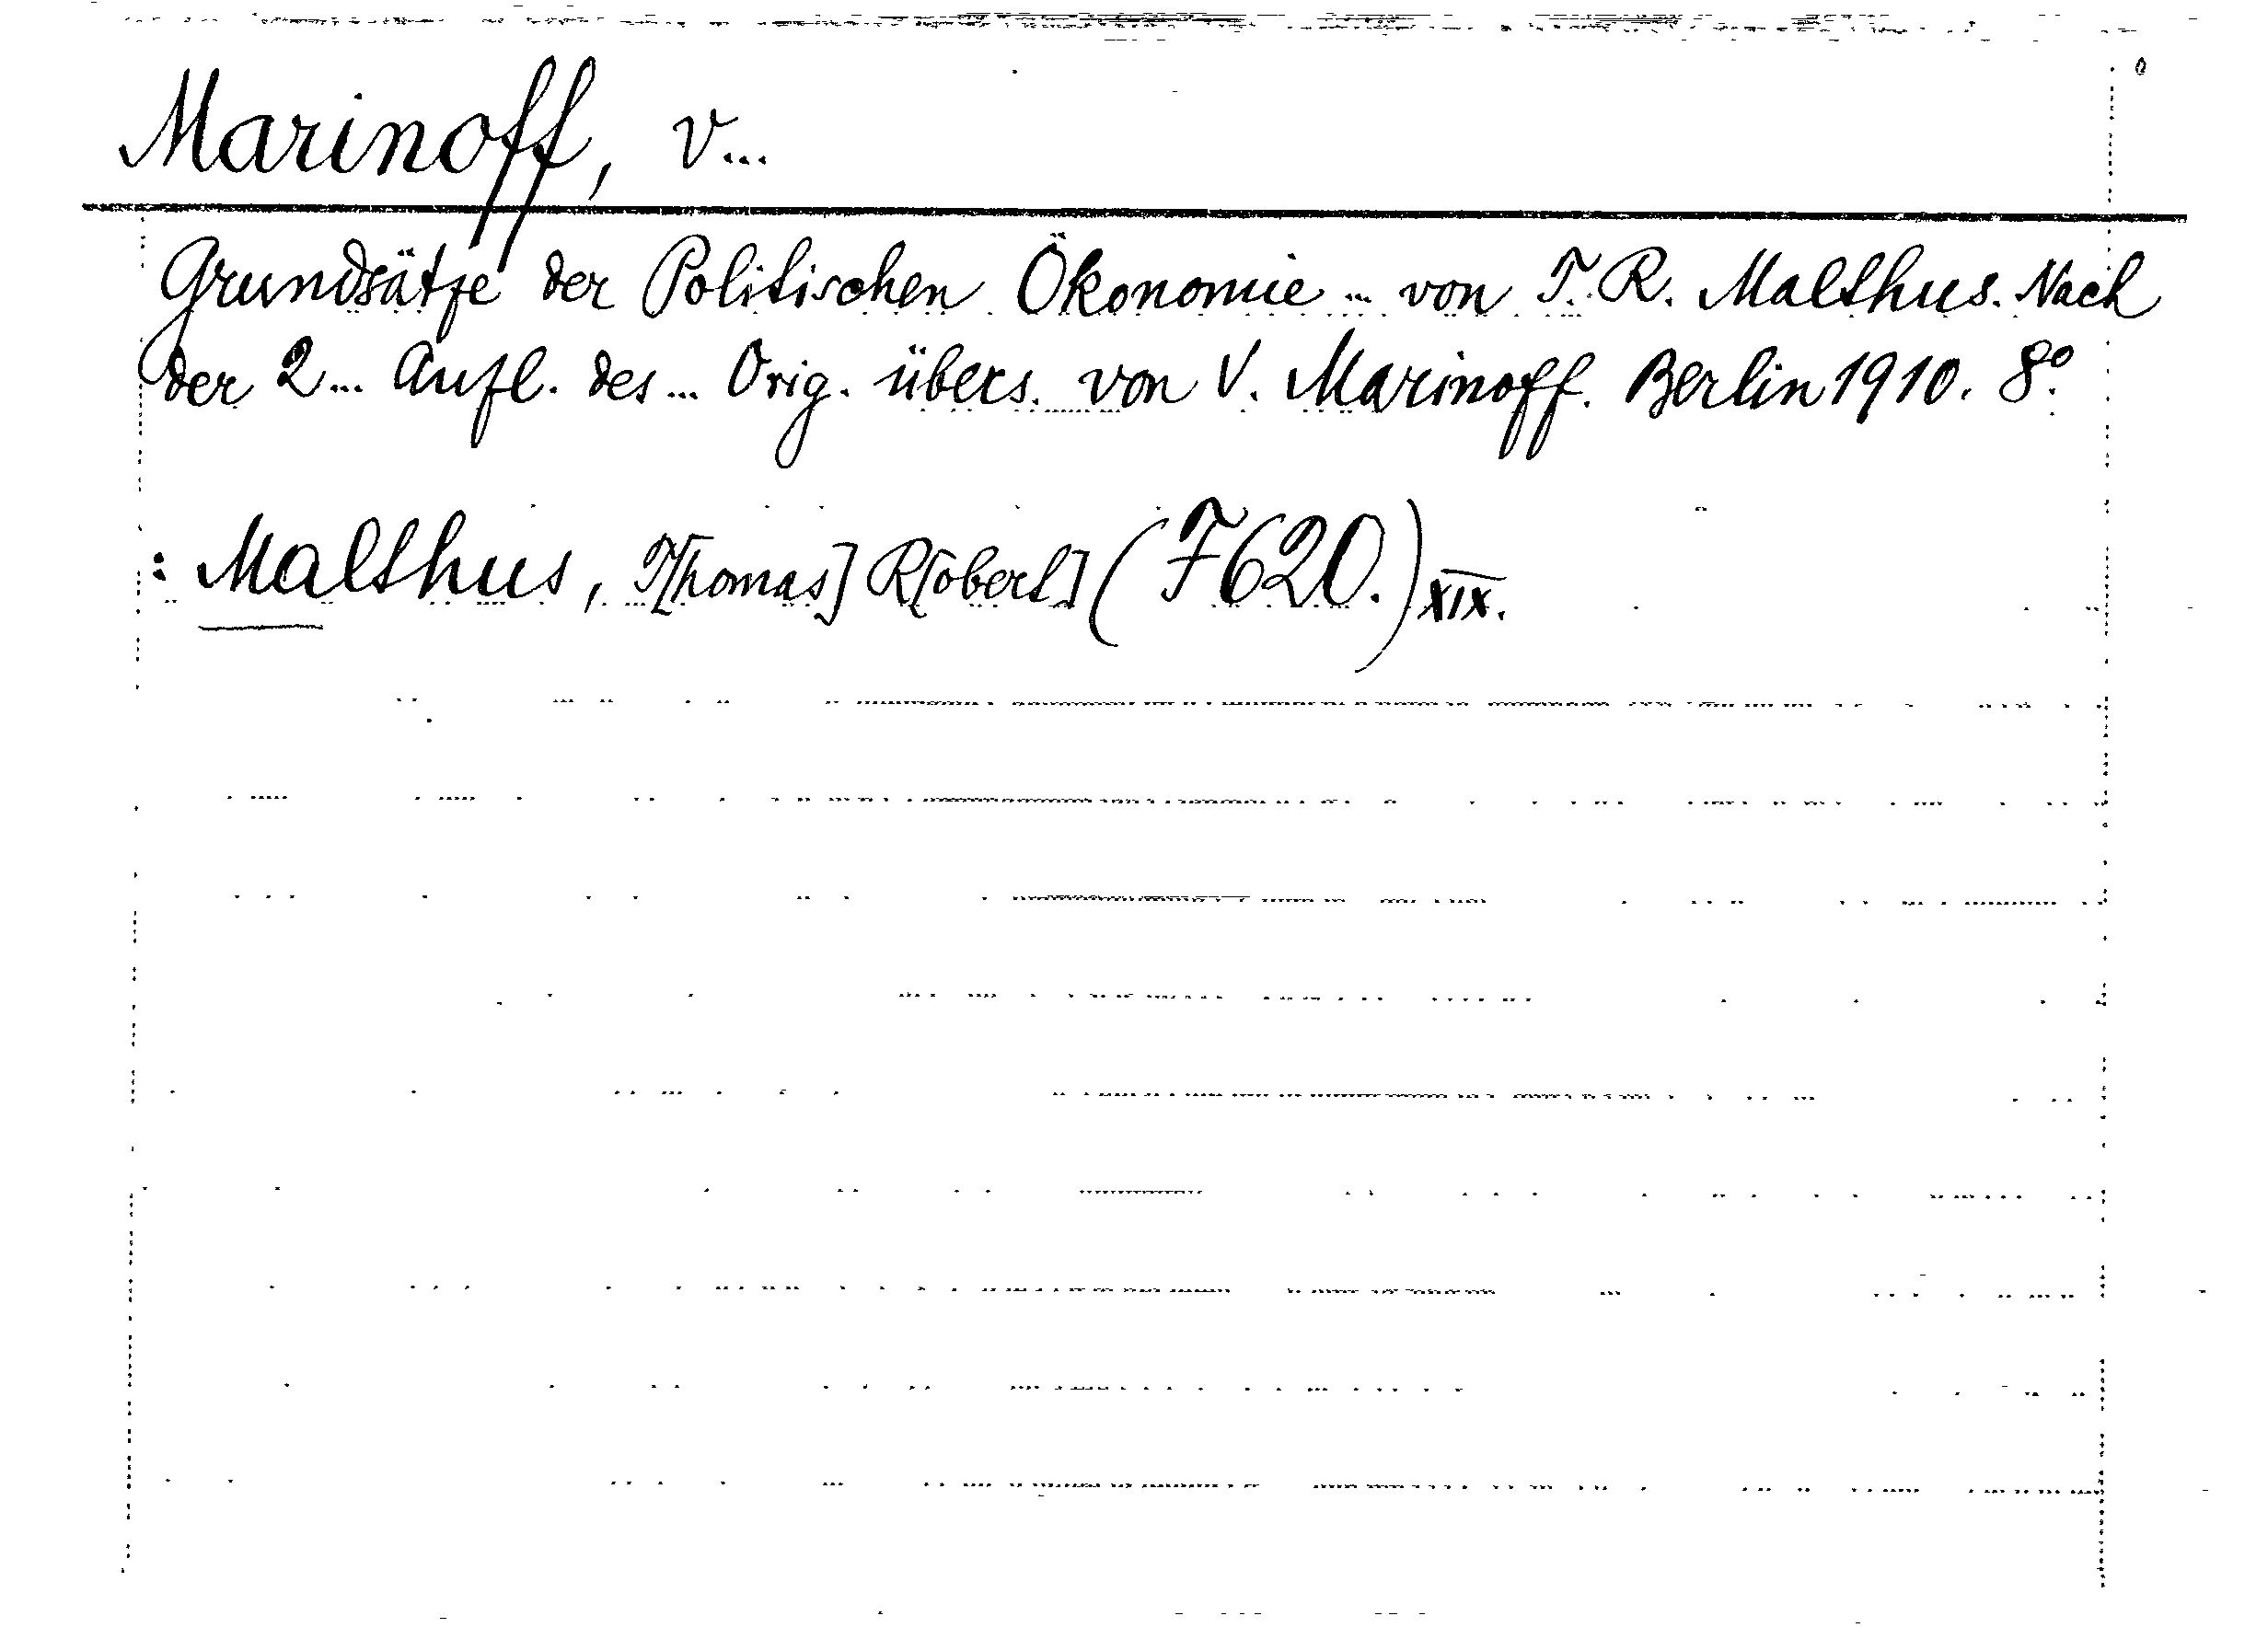 Marinoff, V...
Grundsätze der Politischen Ökonomie ... von T. R. Malthus. Nach
der 2... Aufl. des ... Orig. übers. von V. Marinoff. Berlin 1910. 8°.
: Malthus, T[homas] R[obert] (F620.) XIX.